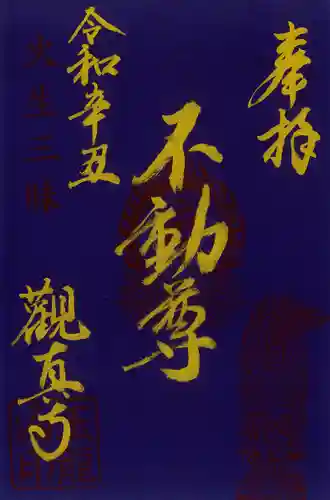 奉拝
不動尊
令和辛丑
火生三昧
觀真寺